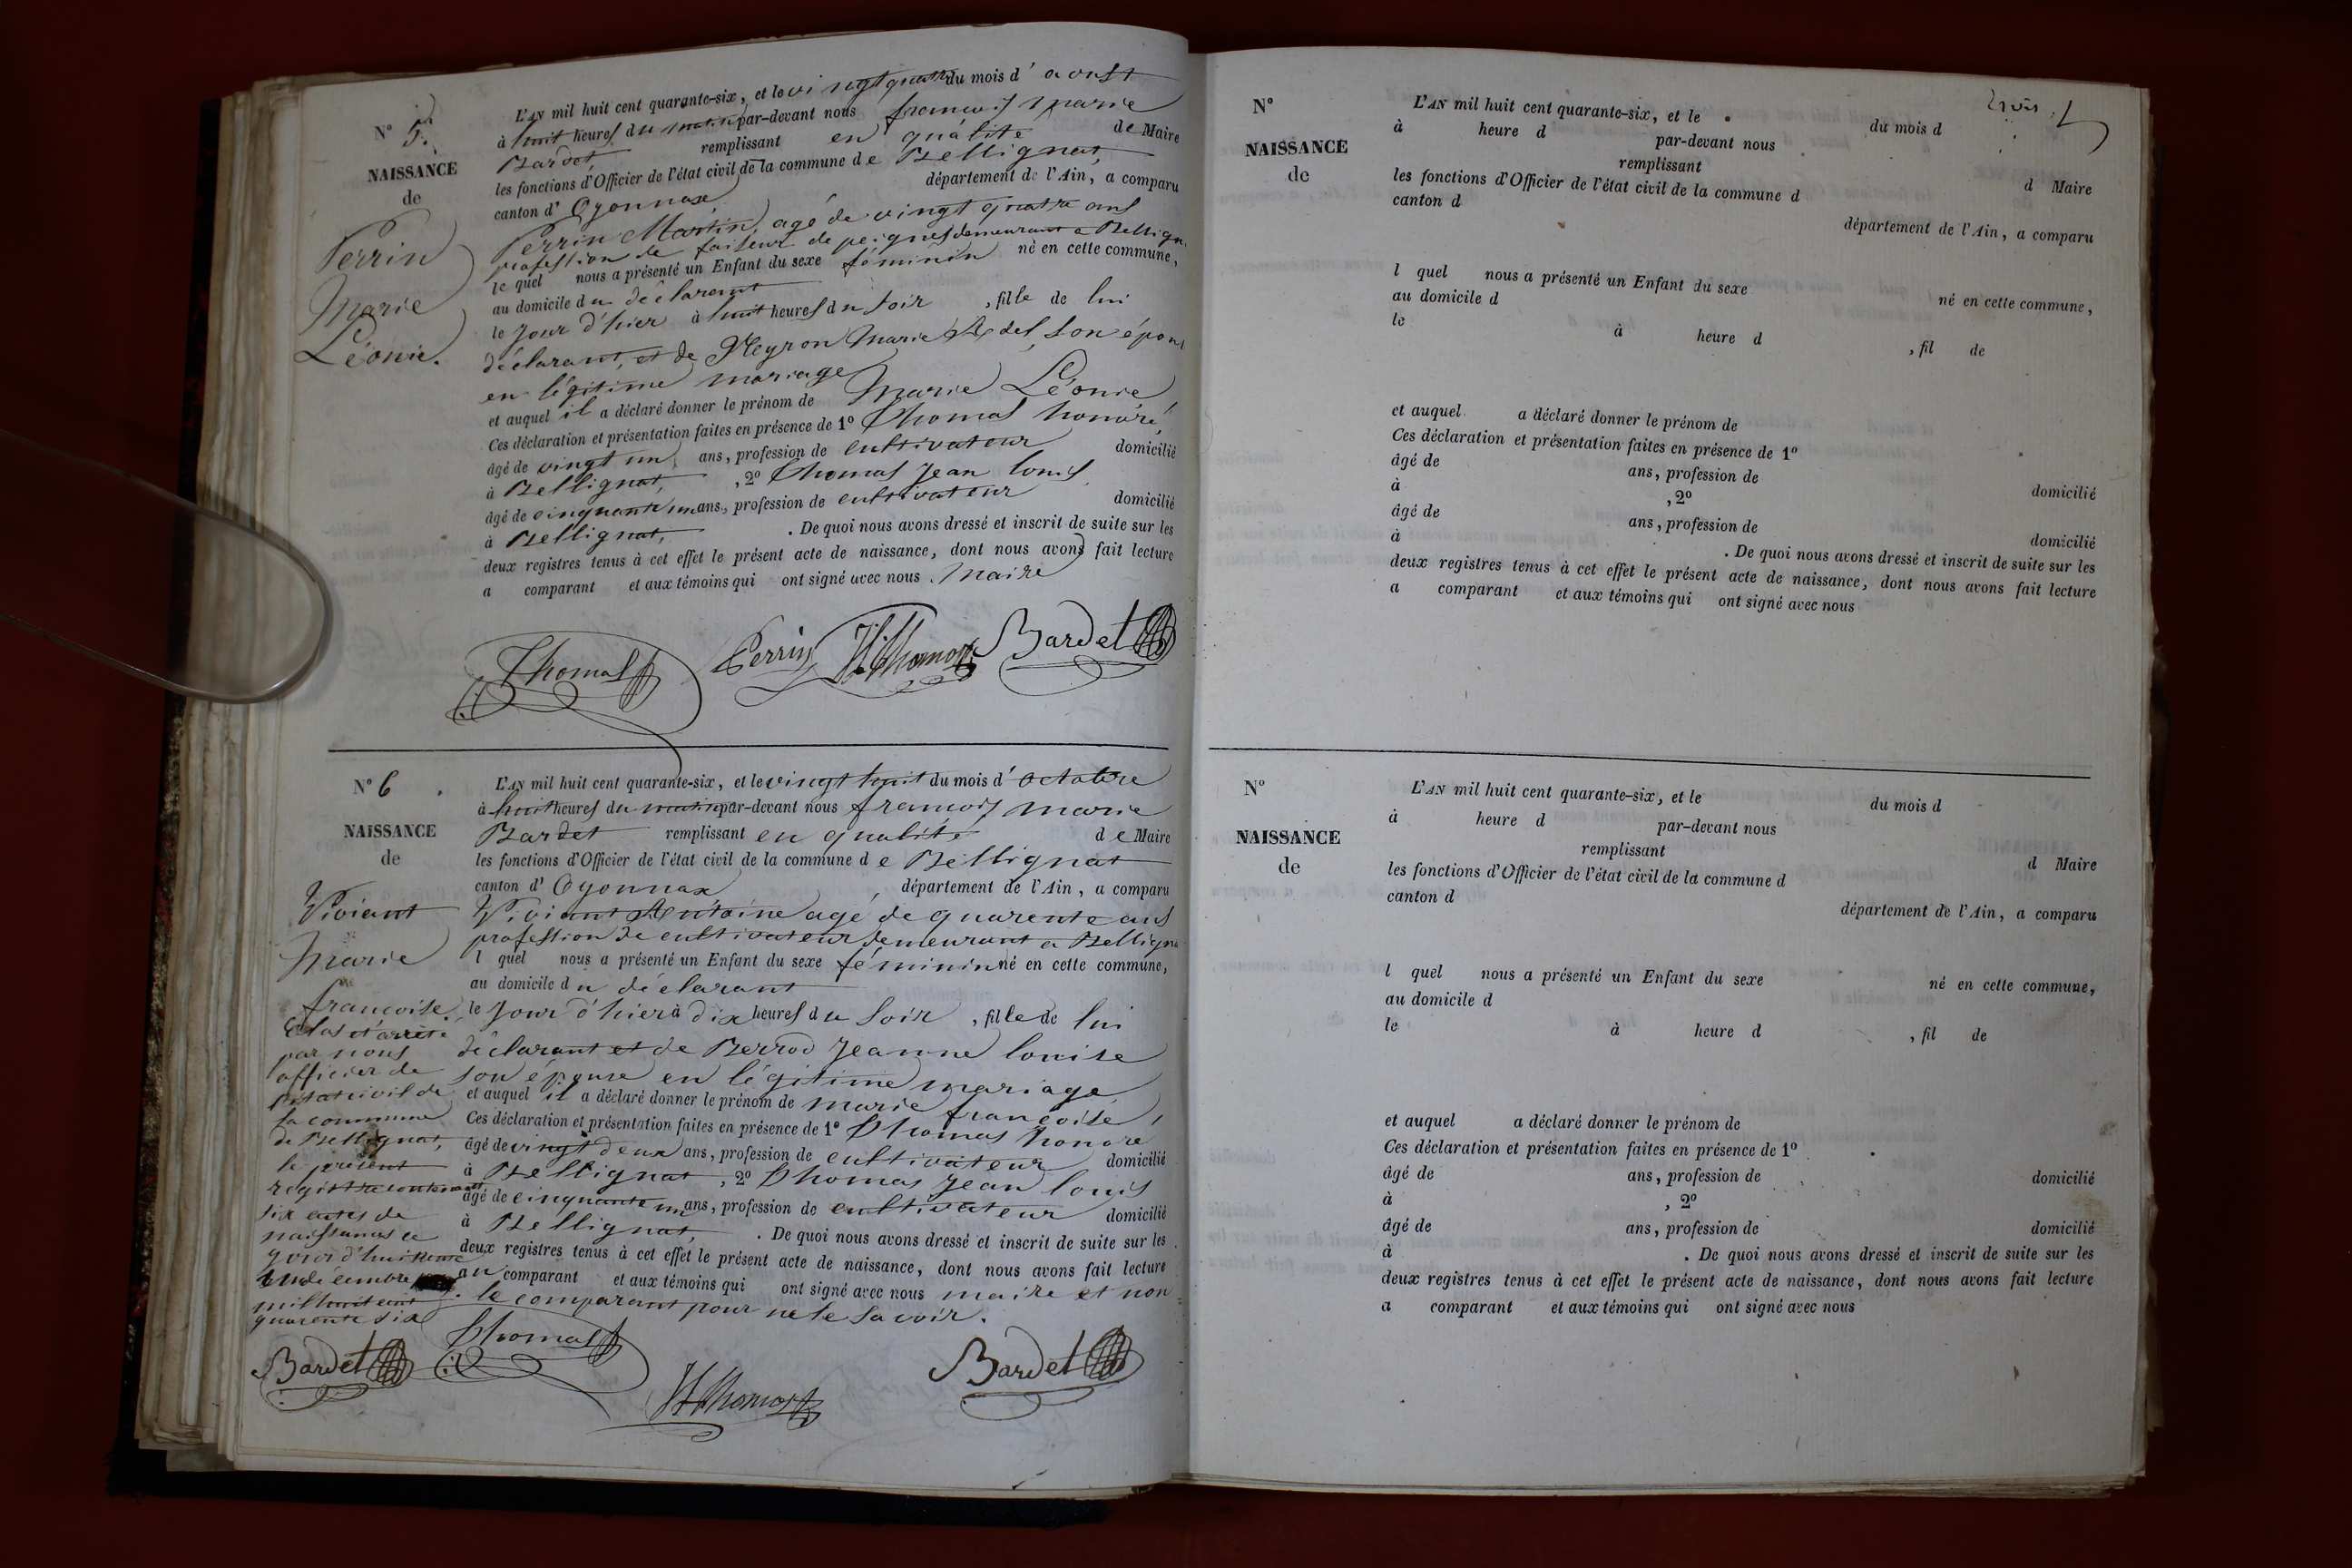 N° 5.
NAISSANCE
de
Perrin
Marie
Léonie.
L'AN mil huit cent quarante-six, et le vingt quatre du mois d'aoust
à huit heures du matin par-devant nous françois marie
Bardet remplissant en qualité de Maire
les fonctions d'Officier de l'état civil de la commune de Bellignat,
canton d'Oyonnax département de l'Ain, a comparu
Perrin Martin, agé de vingt quatre ans
profession de faiseur de peignes demeurant a Bellign
le quel nous a présenté un Enfant du sexe féminin né en cette commune,
au domicile du déclarant
le jour d'hier à huit heures du soir, fille de lui
déclarant, et de Neyron marie Adel, son épou
en légitime mariage
et auquel il a déclaré donner le prénom de Marie Léonie
Ces déclaration et présentation faites en présence de 1° Thomas honoré,
âgé de vingt un ans, profession de cultivateur domicilié
à Bellignat, , 2° Thomas Jean louis
âgé de cinquante un ans, profession de cultivateur domicilié
à Bellignat, . De quoi nous avons dressé et inscrit de suite sur les
deux registres tenus à cet effet le présent acte de naissance, dont nous avons fait lecture
a comparant et aux témoins qui ont signé avec nous. Maire
Thomas Perrin H. Thomas Bardet
N° 6
NAISSANCE
de
Viviant
Marie
françoise.
Clos et arrêté
par nous
officier de
l'état civil de
la commune
de Bellignat,
le présent
registre contenant
six actes de
naissances ce
jourd'hui trente
un décembre
mil huit cent
quarente six
Bardet
L'AN mil huit cent quarante-six, et le vingt huit du mois d'octobre
à huit heures du matin par-devant nous françois marie
Bardet remplissant en qualité de Maire
les fonctions d'Officier de l'état civil de la commune de Bellignat
canton d'Oyonnax département de l'Ain, a comparu
Viviant Antoine agé de quarente ans
profession de cultivateur demeurant a Belligna
l quel nous a présenté un Enfant du sexe féminin né en cette commune,
au domicile du déclarant
le jour d'hier à dix heures du soir, fille de lui
déclarant et de Berrod Jeanne louise
son épouse en légitime mariage
et auquel il a déclaré donner le prénom de marie françoise,
Ces déclaration et présentation faites en présence de 1° Thomas honoré
âgé de vingt deux ans, profession de cultivateur domicilié
à Bellignat, 2° Thomas Jean louis
âgé de cinquante un ans, profession de cultivateur domicilié
à Bellignat, . De quoi nous avons dressé et inscrit de suite sur les
deux registres tenus à cet effet le présent acte de naissance, dont nous avons fait lecture
au comparant et aux témoins qui ont signé avec nous maire et non
le comparant pour ne le savoir.
Thomas
H Thomas
Bardet
trois
N°
NAISSANCE
de
L'AN mil huit cent quarante-six, et le du mois d
à heure d par-devant nous
remplissant d Maire
les fonctions d'Officier de l'état civil de la commune d
canton d département de l'Ain, a comparu
l quel nous a présenté un Enfant du sexe né en cette commune,
au domicile d
le à heure d , fil de
et auquel a déclaré donner le prénom de
Ces déclaration et présentation faites en présence de 1°
âgé de ans, profession de domicilié
à , 2°
âgé de ans, profession de domicilié
à . De quoi nous avons dressé et inscrit de suite sur les
deux registres tenus à cet effet le présent acte de naissance, dont nous avons fait lecture
a comparant et aux témoins qui ont signé avec nous
N°
NAISSANCE
de
L'AN mil huit cent quarante-six, et le du mois d
à heure d par-devant nous
remplissant d Maire
les fonctions d'Officier de l'état civil de la commune d
canton d département de l'Ain, a comparu
l quel nous a présenté un Enfant du sexe né en cette commune,
au domicile d
le à heure d , fil de
et auquel a déclaré donner le prénom de
Ces déclaration et présentation faites en présence de 1°
âgé de ans, profession de domicilié
à , 2°
âgé de ans, profession de domicilié
à . De quoi nous avons dressé et inscrit de suite sur les
deux registres tenus à cet effet le présent acte de naissance, dont nous avons fait lecture
a comparant et aux témoins qui ont signé avec nous